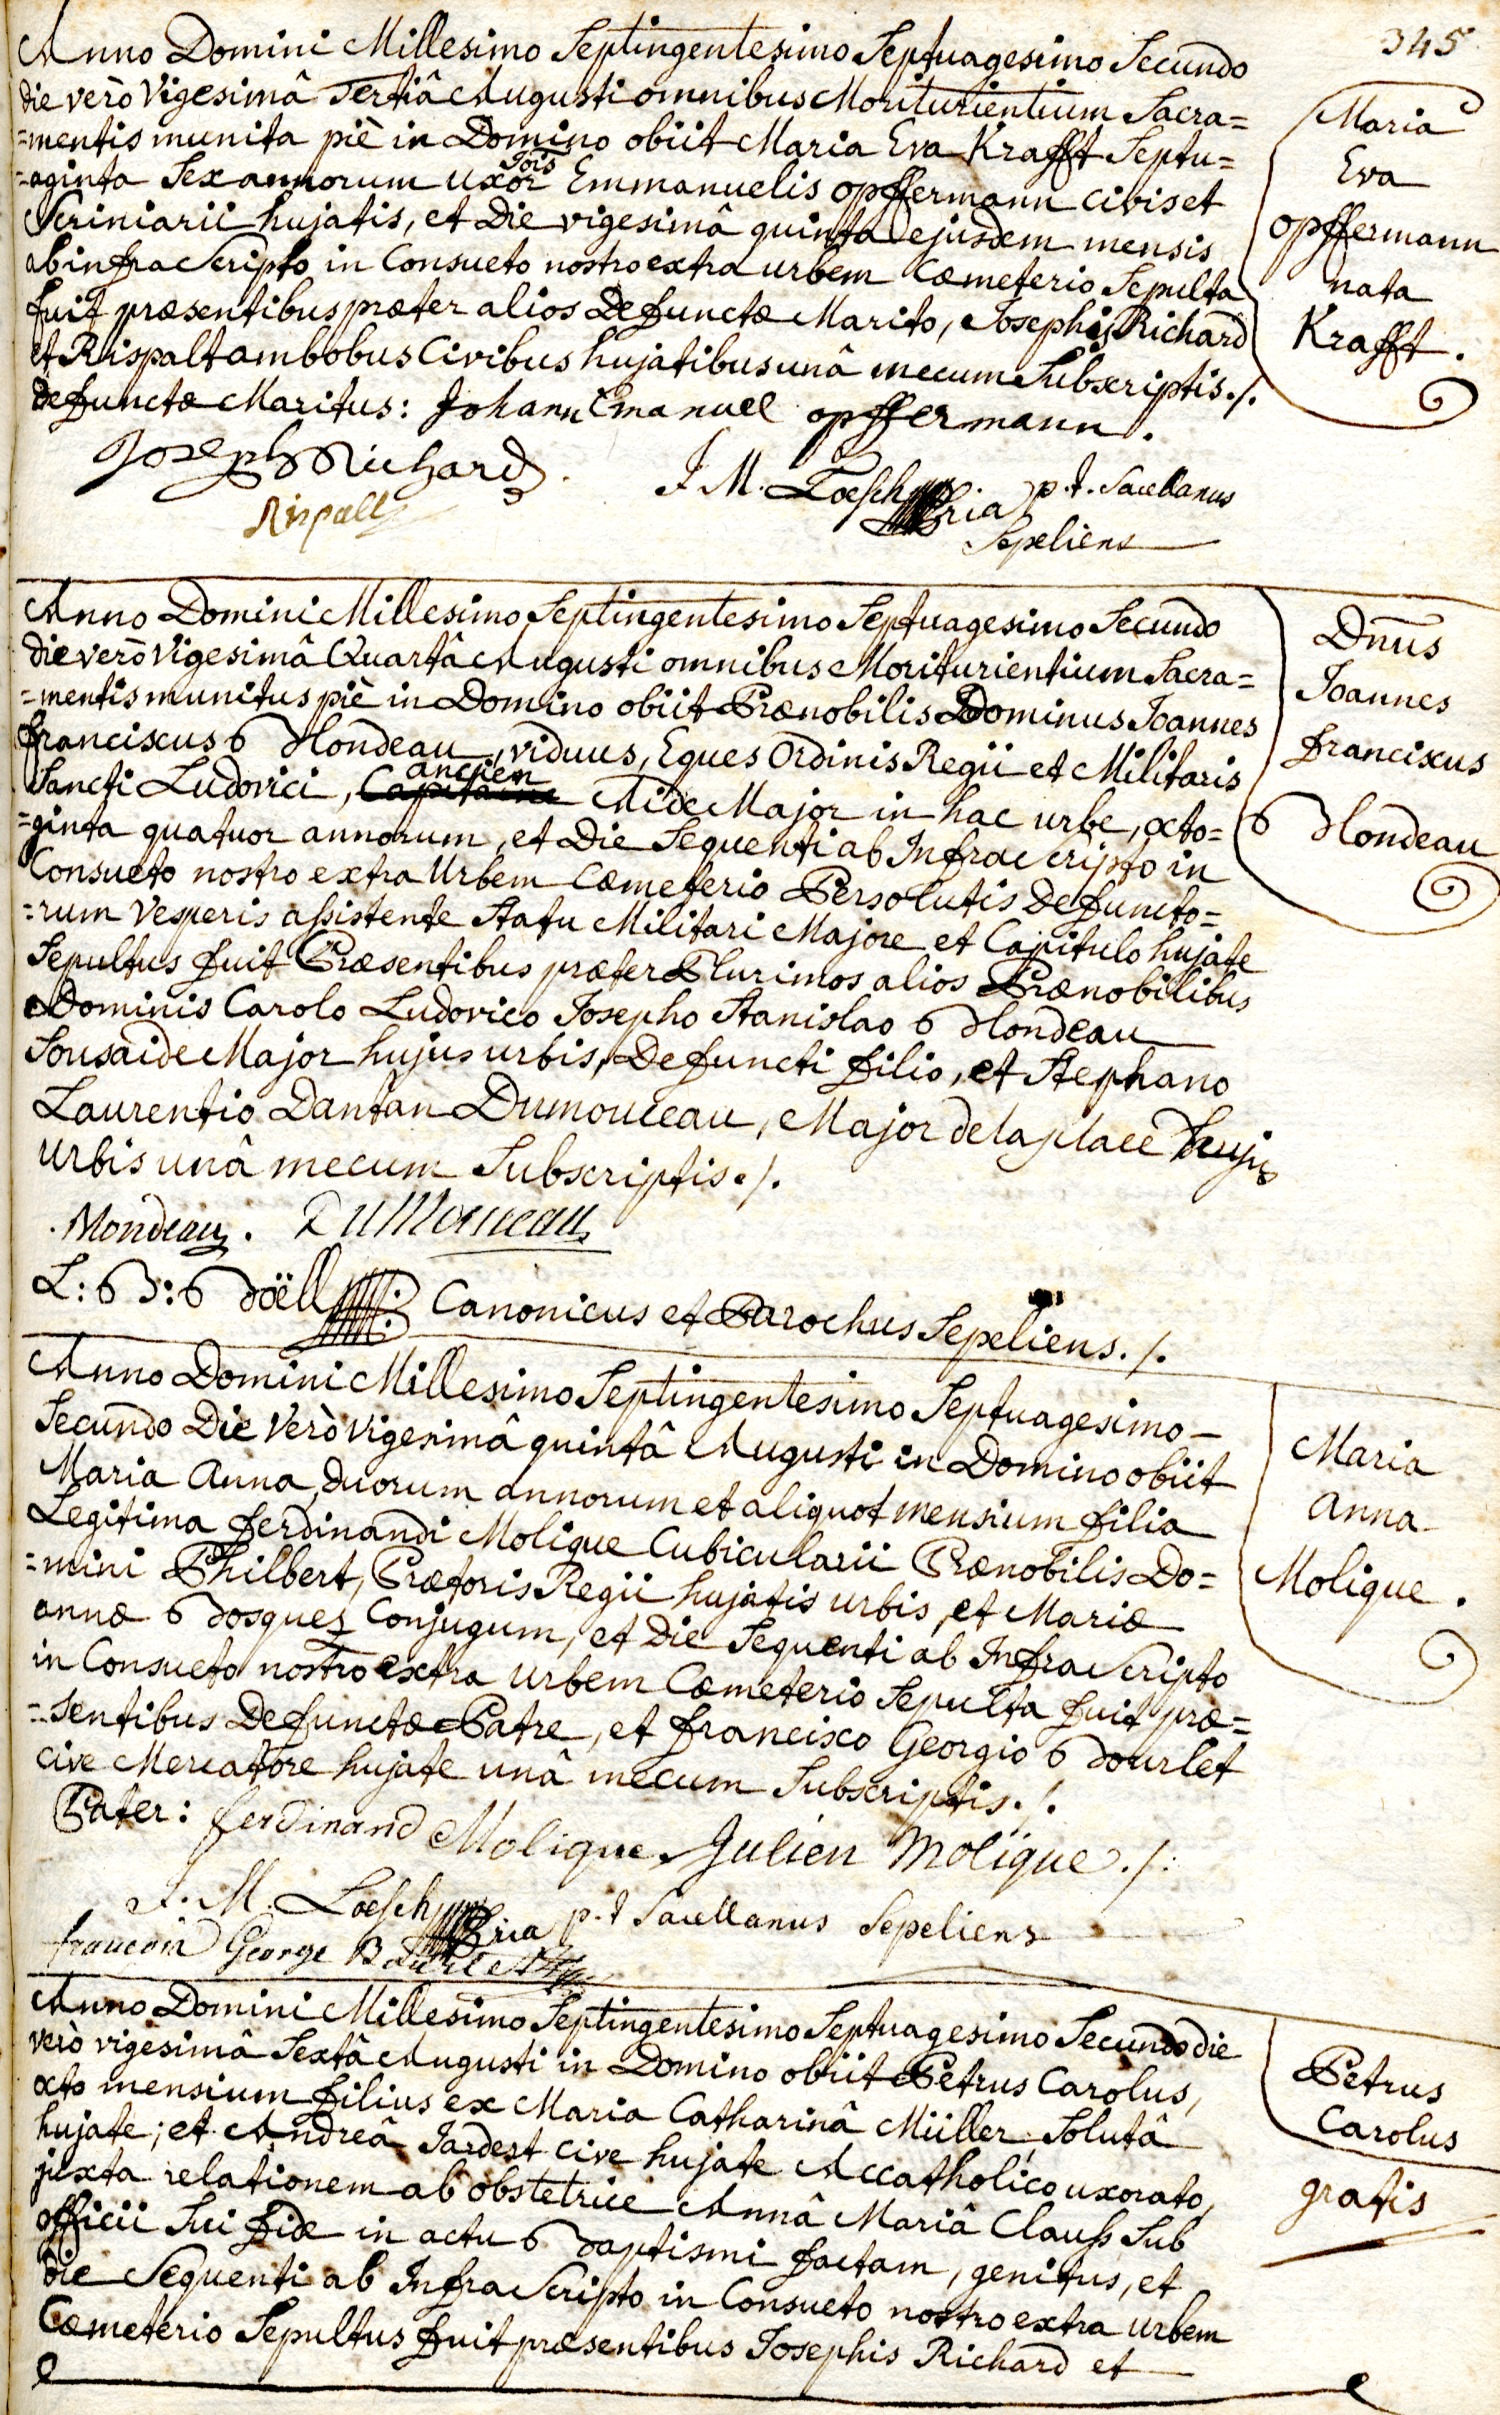 345
Anno Domini Millesimo Septingentesimo Septuagesimo Secundo
die verò Vigesimâ Tertiâ Augusti omnibus Moriturientium Sacra=
=mentis munita piè in Domino obiit Maria Eva Krafft Septu=
=aginta Sex annorum uxor Jois Emmanuelis opffermann civis et
Scriniarii hujatis, et Die vigesimâ quinta ejusdem mensis
ab infra Scripto in Consueto nostro extra urbem Cæmeterio Sepulta
fuit præsentibus præter alios Defunctæ Marito, Josephis Richard
et Rispalt ambobus Civibus hujatibus unâ mecum Subscriptis ./.
defunctæ Maritus: Johann Emanuel opffermann.
Joseph Richard.
J. M. Loesch p.t. Sacellanus
Rispall
Sepeliens
Maria
Eva
opffermann
nata
Krafft.
Anno Domini Millesimo Septingentesimo Septuagesimo Secundo
die verò Vigesimâ Quartâ Augusti omnibus Moriturientium Sacra=
=mentis munitus piè in Domino obiit Prænobilis Dominus Joannes
franciscus Blondeau, viduus, Eques Ordinis Regii et Militaris
Sancti Ludovici, Capitaine ancien Aide Major in hac urbe, octo=
=ginta quatuor annorum, et Die Sequenti ab Infra Scripto in
Consueto nostro extra Urbem Cæmeterio Persolutis Defuncto=
=rum Vesperis assistente Statu Militari Majore et Capitulo hujate
Sepultus fuit Præsentibus præter Plurimos alios Prænobilibus
Dominis Carolo Ludovico Josepho Stanislao Blondeau
Sousaide Major hujus urbis, Defuncti filio, et Stephano
Laurentio Dantan Dumouceau, Major de la place hujus
Urbis unâ mecum Subscriptis ./.
Blondeau. DuMouceau
L: B: Boëll Canonicus et Parochus Sepeliens ./.
Dnus
Joannes
franciscus
Blondeau
Anno Domini Millesimo Septingentesimo Septuagesimo
Secundo Die Verò Vigesimâ quintâ Augusti in Domino obiit
Maria Anna, duorum annorum et aliquot mensium filia
Legitima ferdinandi Molique Cubicularii Prænobilis Do=
=mini Philbert, Prætoris Regii hujatis urbis, et Mariæ
annæ Bosquez Conjugum, et Die Sequenti ab Infra Scripto
in Consueto nostro extra urbem Cæmeterio Sepulta fuit præ=
=sentibus Defunctæ Patre, et francisco Georgio Bourlet
cive Mercatore hujate unâ mecum Subscriptis ./.
Pater: ferdinand Molique Julien Molique ./:
J. M. Loesch p.t Sacellanus Sepeliens
françois George Bourlet
Maria
Anna
Molique.
Anno Domini Millesimo Septingentesimo Septuagesimo Secundo die
verò vigesimâ Sextâ Augusti in Domino obiit Petrus Carolus,
octo mensium filius ex Maria Catharinâ Müller Solutâ
hujate; et Andreâ Jardest cive hujate Accatholico uxorato,
juxta relationem ab obstetrice Annâ Mariâ Clauß Sub
officii Sui fide in actu Baptismi factam, genitus, et
die Sequenti ab Infra Scripto in Consueto nostro extra urbem
Cæmeterio Sepultus fuit præsentibus Josephis Richard et
Petrus
Carolus
gratis